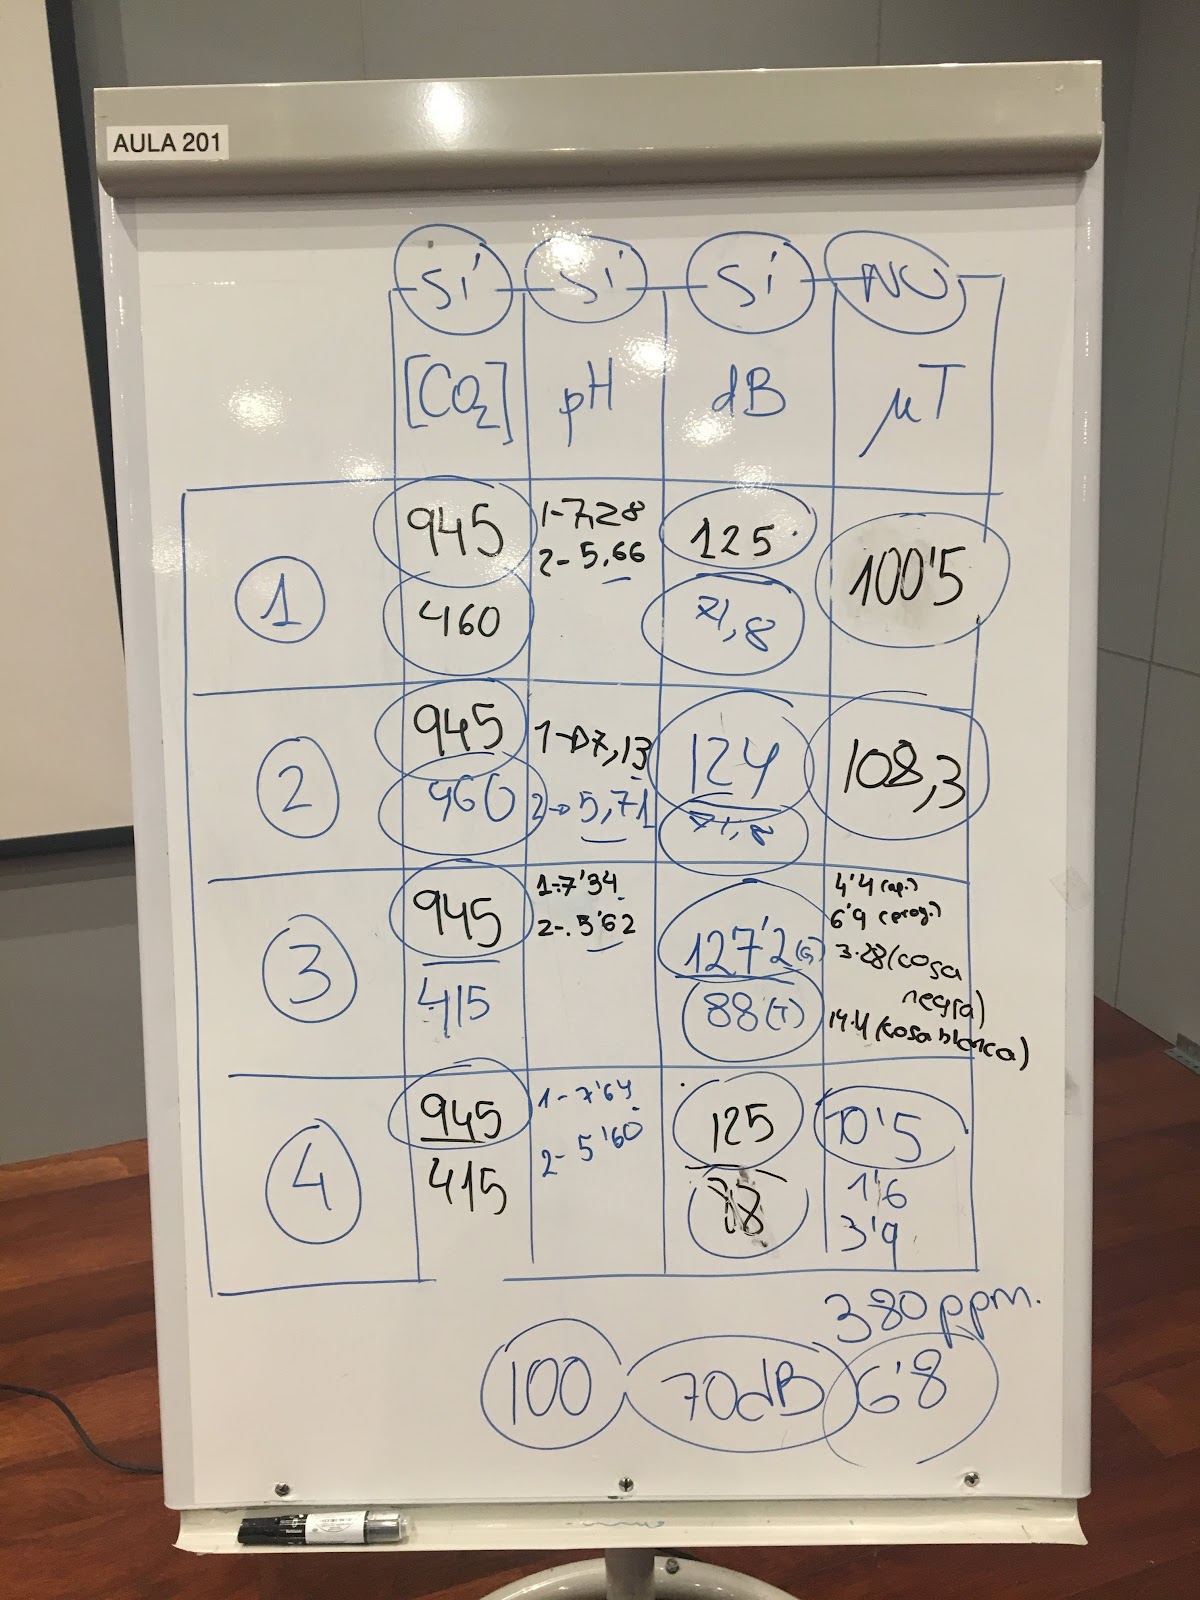 AULA 201
Sí Sí Sí NO
[CO₂] pH dB μT
1
945
460
1-7,28
2-5,66
125
71,8
100'5
2
945
460
1→7,13
2→5,71
124
71,8
108,3
3
945
415
1-7'34
2-.5'62
127'2(G)
88(T)
4'4 (ap.)
6'9 (proy.)
3.28(cosa
negra)
14.4(cosa blanca)
4
945
415
1-7'64
2-5'60
125
88
10'5
1'6
3'9
380 ppm.
100 70dB 6'8